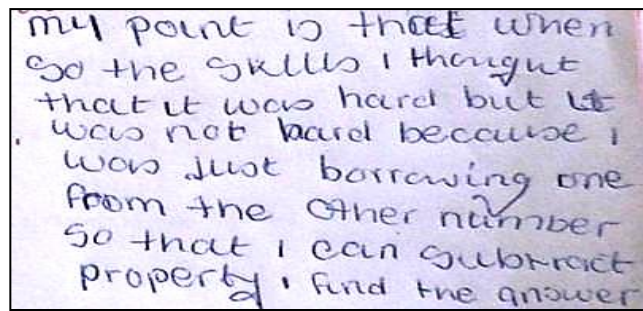 my point is that when
so the skills i thought
that it was hard but it
was not hard because i
was just borrowing one
from the other number
so that i can subtract
property i find the answer